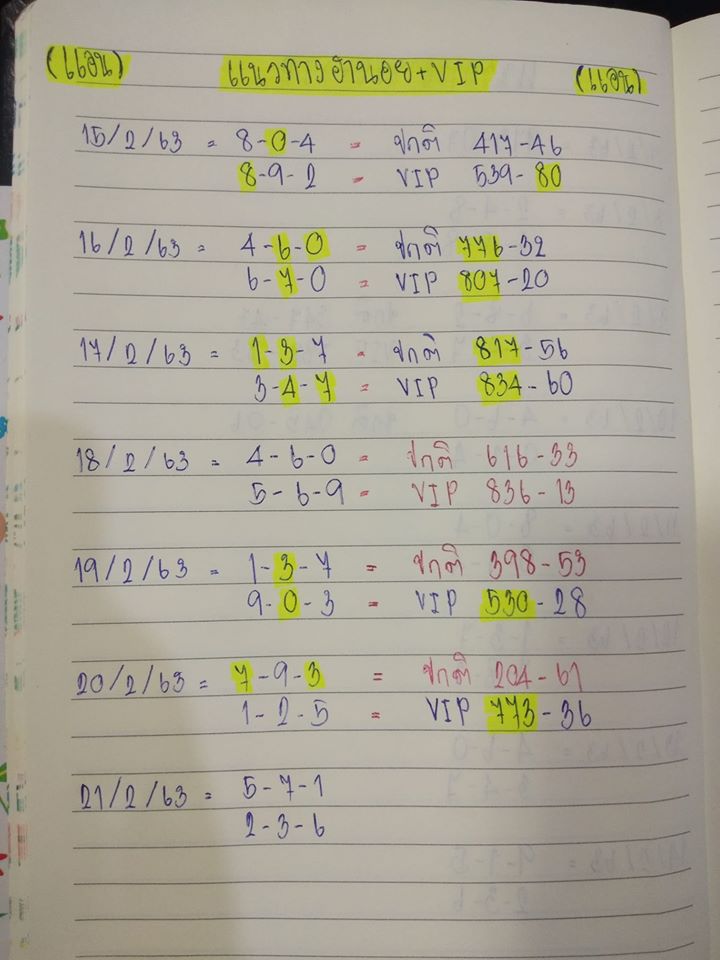 (แอน) แนวทางฮานอย+VIP (แอน)
15/2/63 = 8-0-4 = ปกติ 417-46
8-9-2 = VIP 539-80
16/2/63 = 4-6-0 = ปกติ 776-32
6-7-0 = VIP 807-20
17/2/63 = 1-3-7 = ปกติ 817-56
3-4-7 = VIP 834-60
18/2/63 = 4-6-0 = ปกติ 616-33
5-6-9 = VIP 836-13
19/2/63 = 1-3-7 = ปกติ 398-53
9-0-3 = VIP 530-28
20/2/63 = 7-9-3 = ปกติ 204-61
1-2-5 = VIP 773-36
21/2/63 = 5-7-1
2-3-6